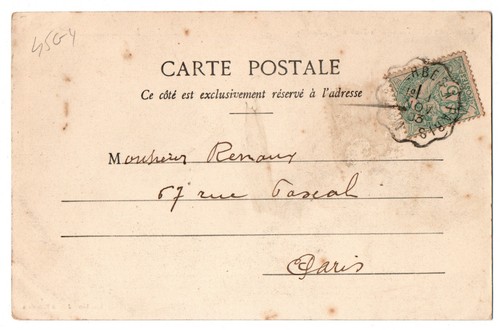 4564
CARTE POSTALE
Ce côté est exclusivement réservé à l'adresse
Monsieur Renaux
67 rue Pascal
Paris